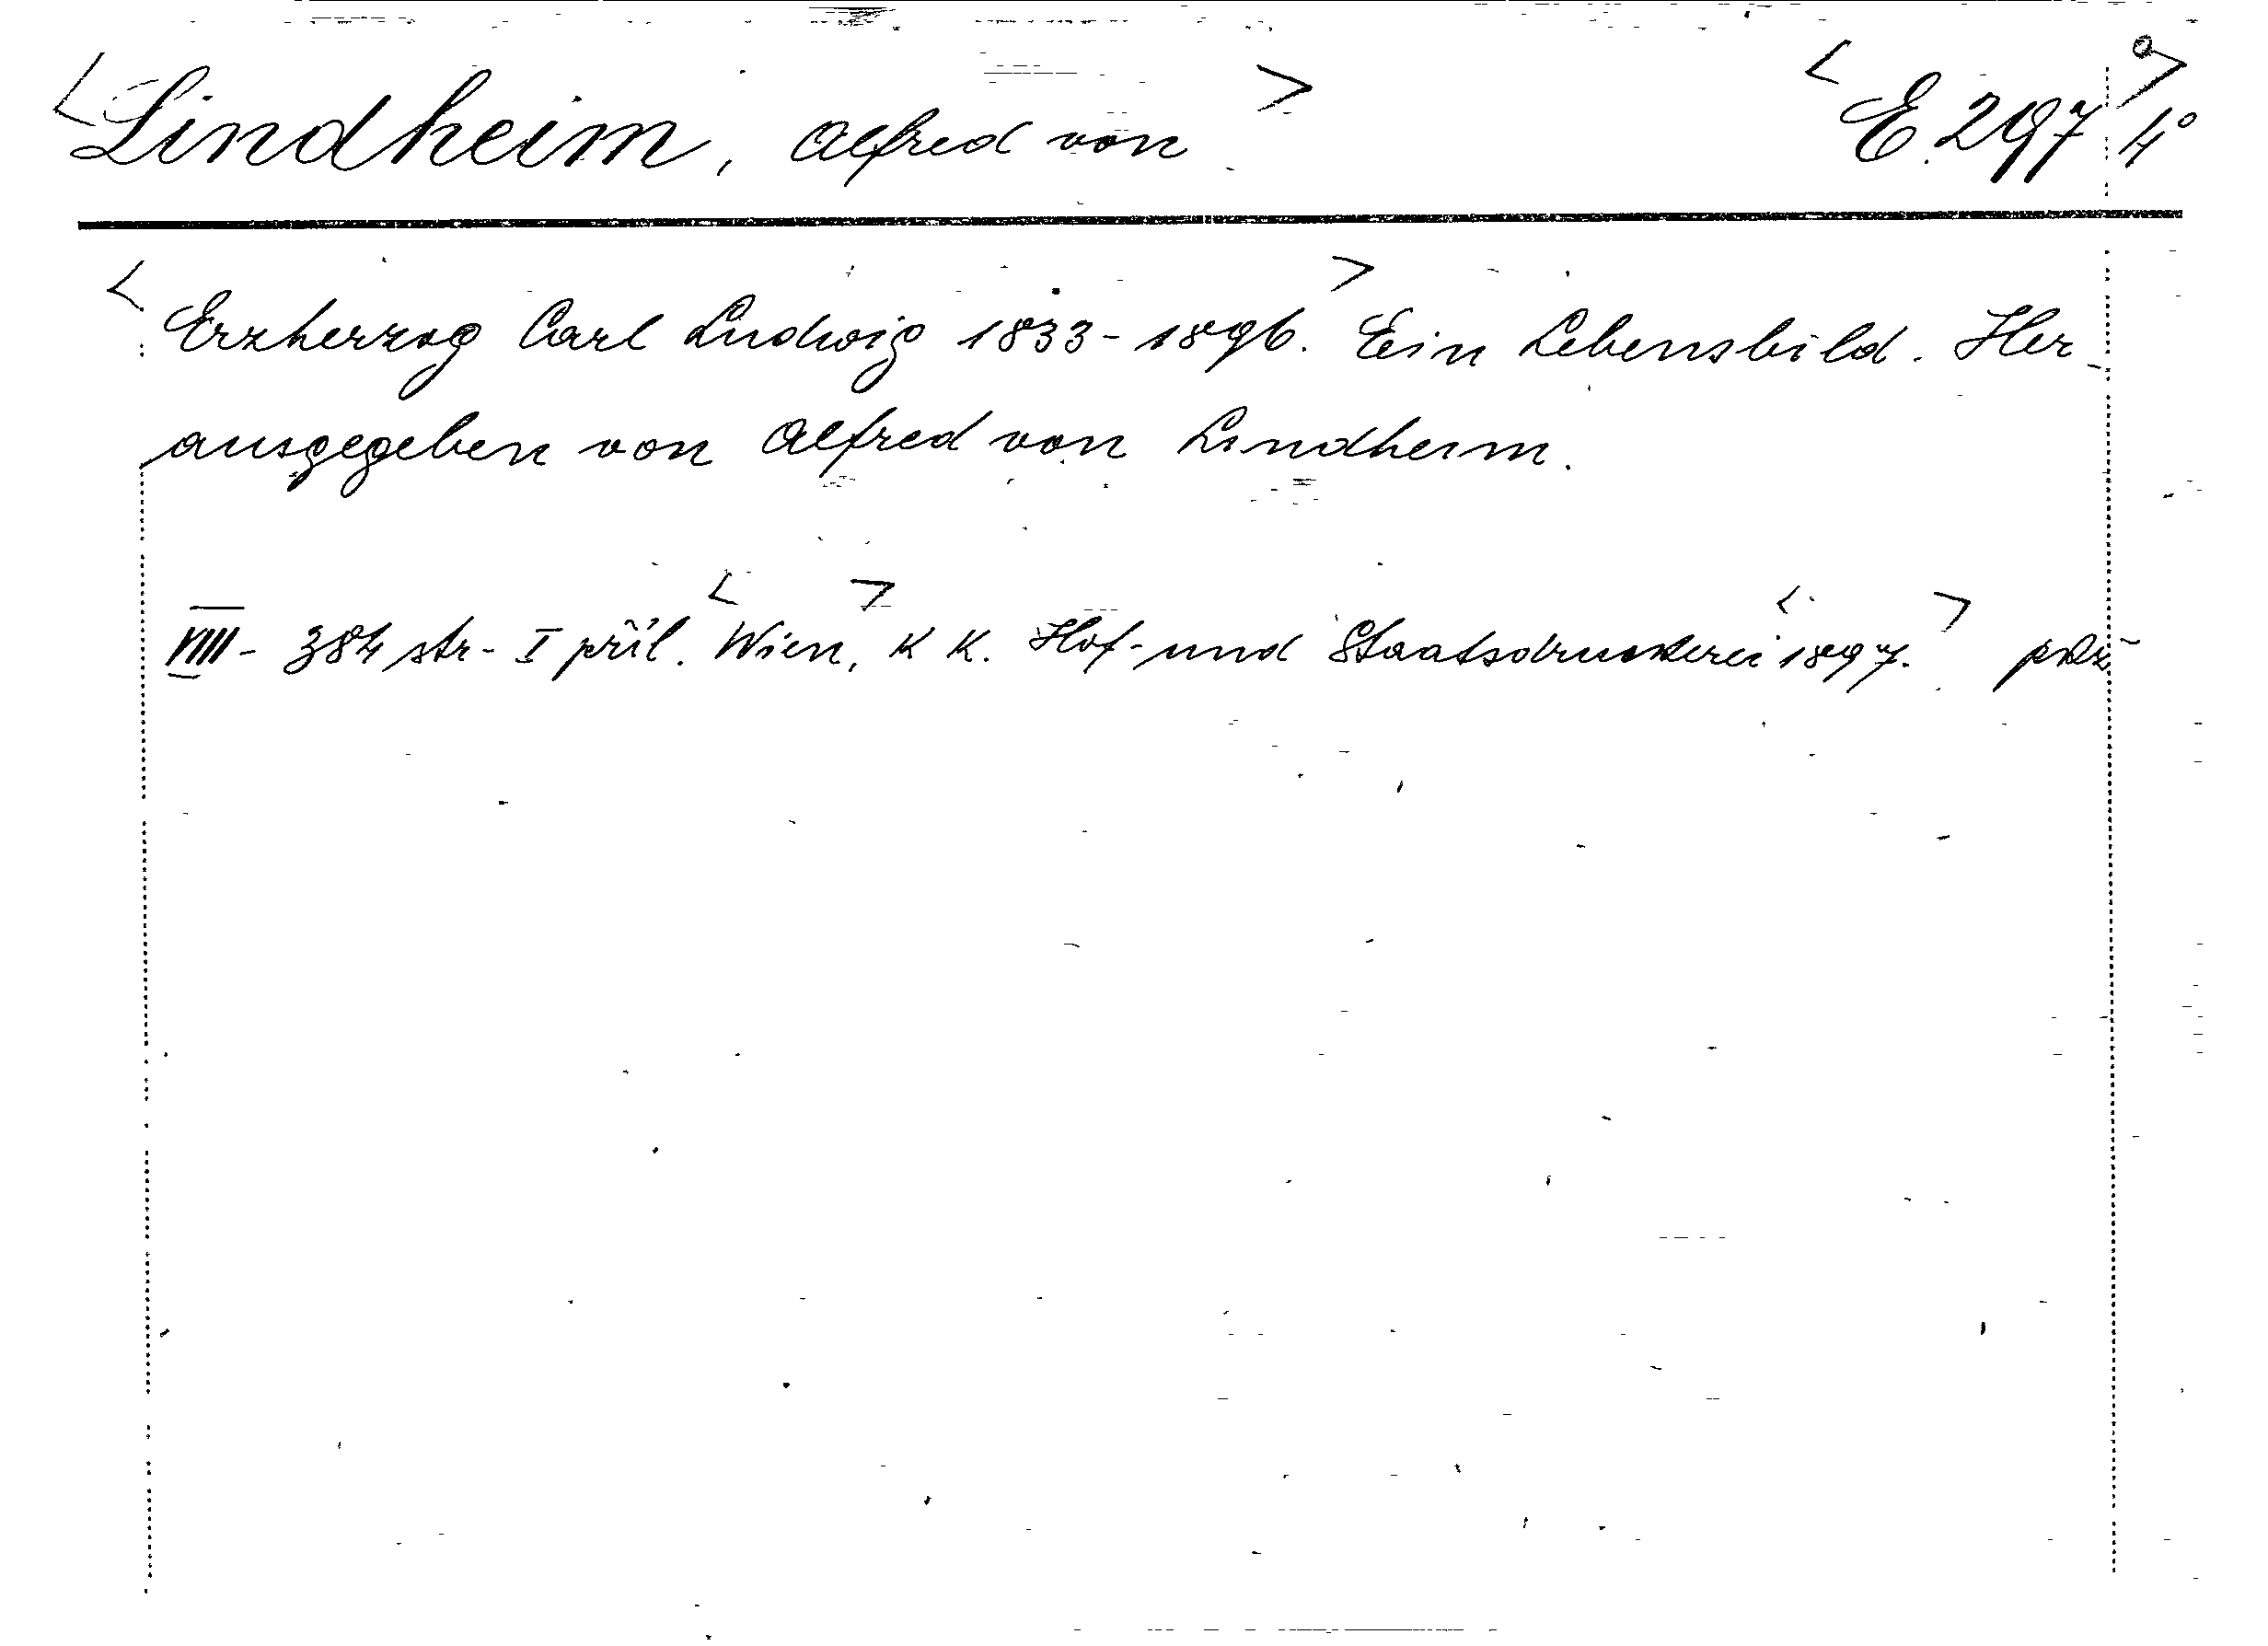 <Lindheim, Alfred von> <E.297 4°>
<Erzherzog Carl Ludwig 1833-1896.> Ein Lebensbild. Her-
ausgegeben von Alfred von Lindheim.
VIII - 384 str - I příl. <Wien>, K K. Hof- und Staatsdruckerei <1897.>